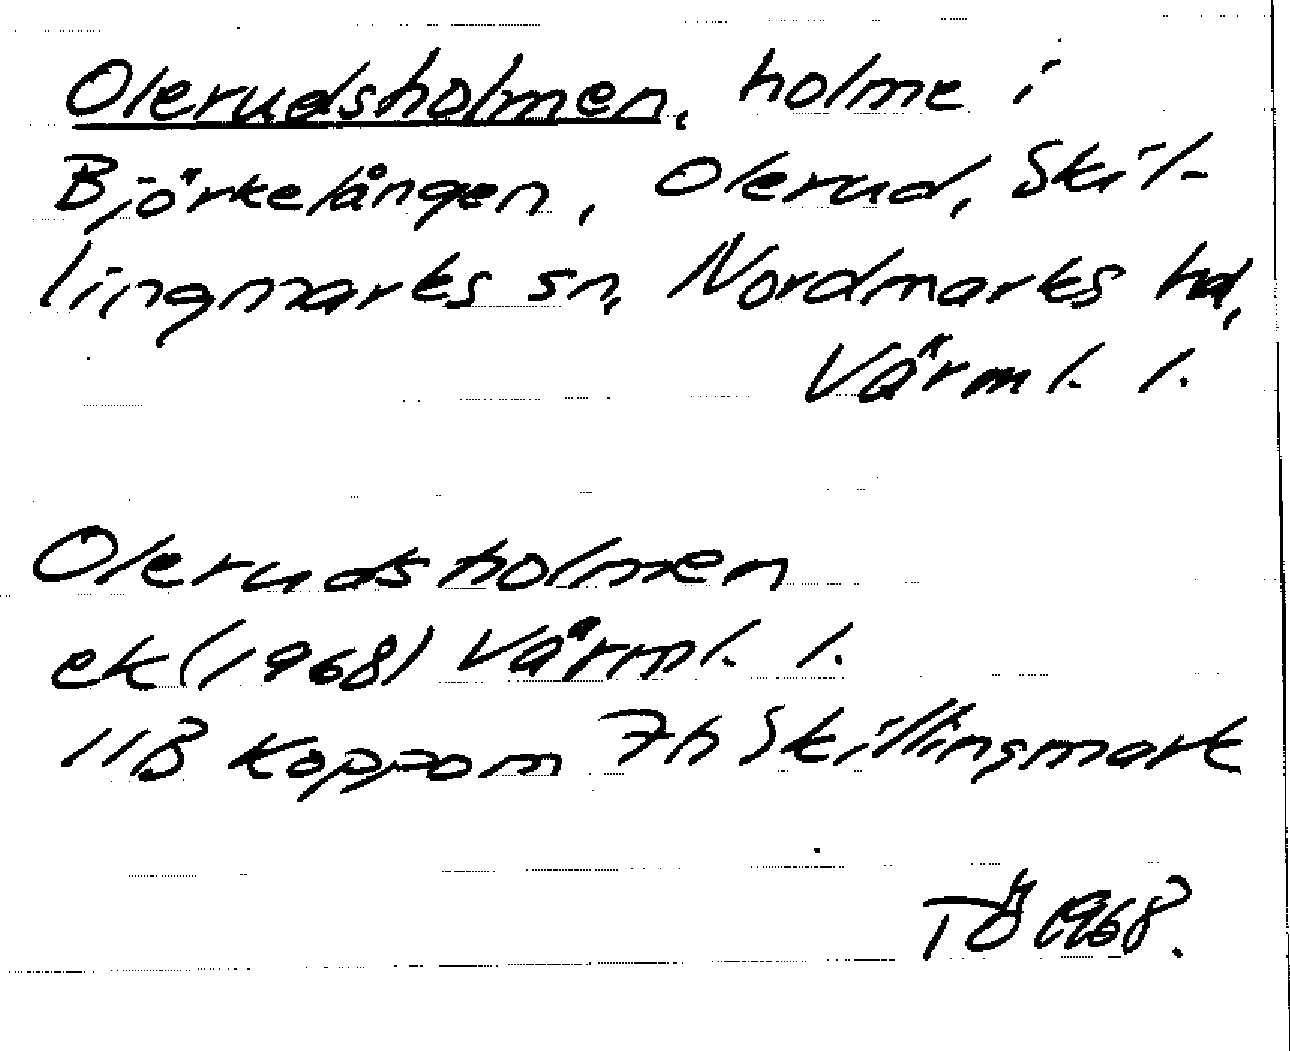 Olerudsholmen, holme i
Björkelången, Olerud, Skil-
lingmarks sn, Nordmarks hd,
Värml. l.
Olerudsholmen
ek (1968) Värml. l.
11B Koppom 7h Skillingmark
TÖ 1968.